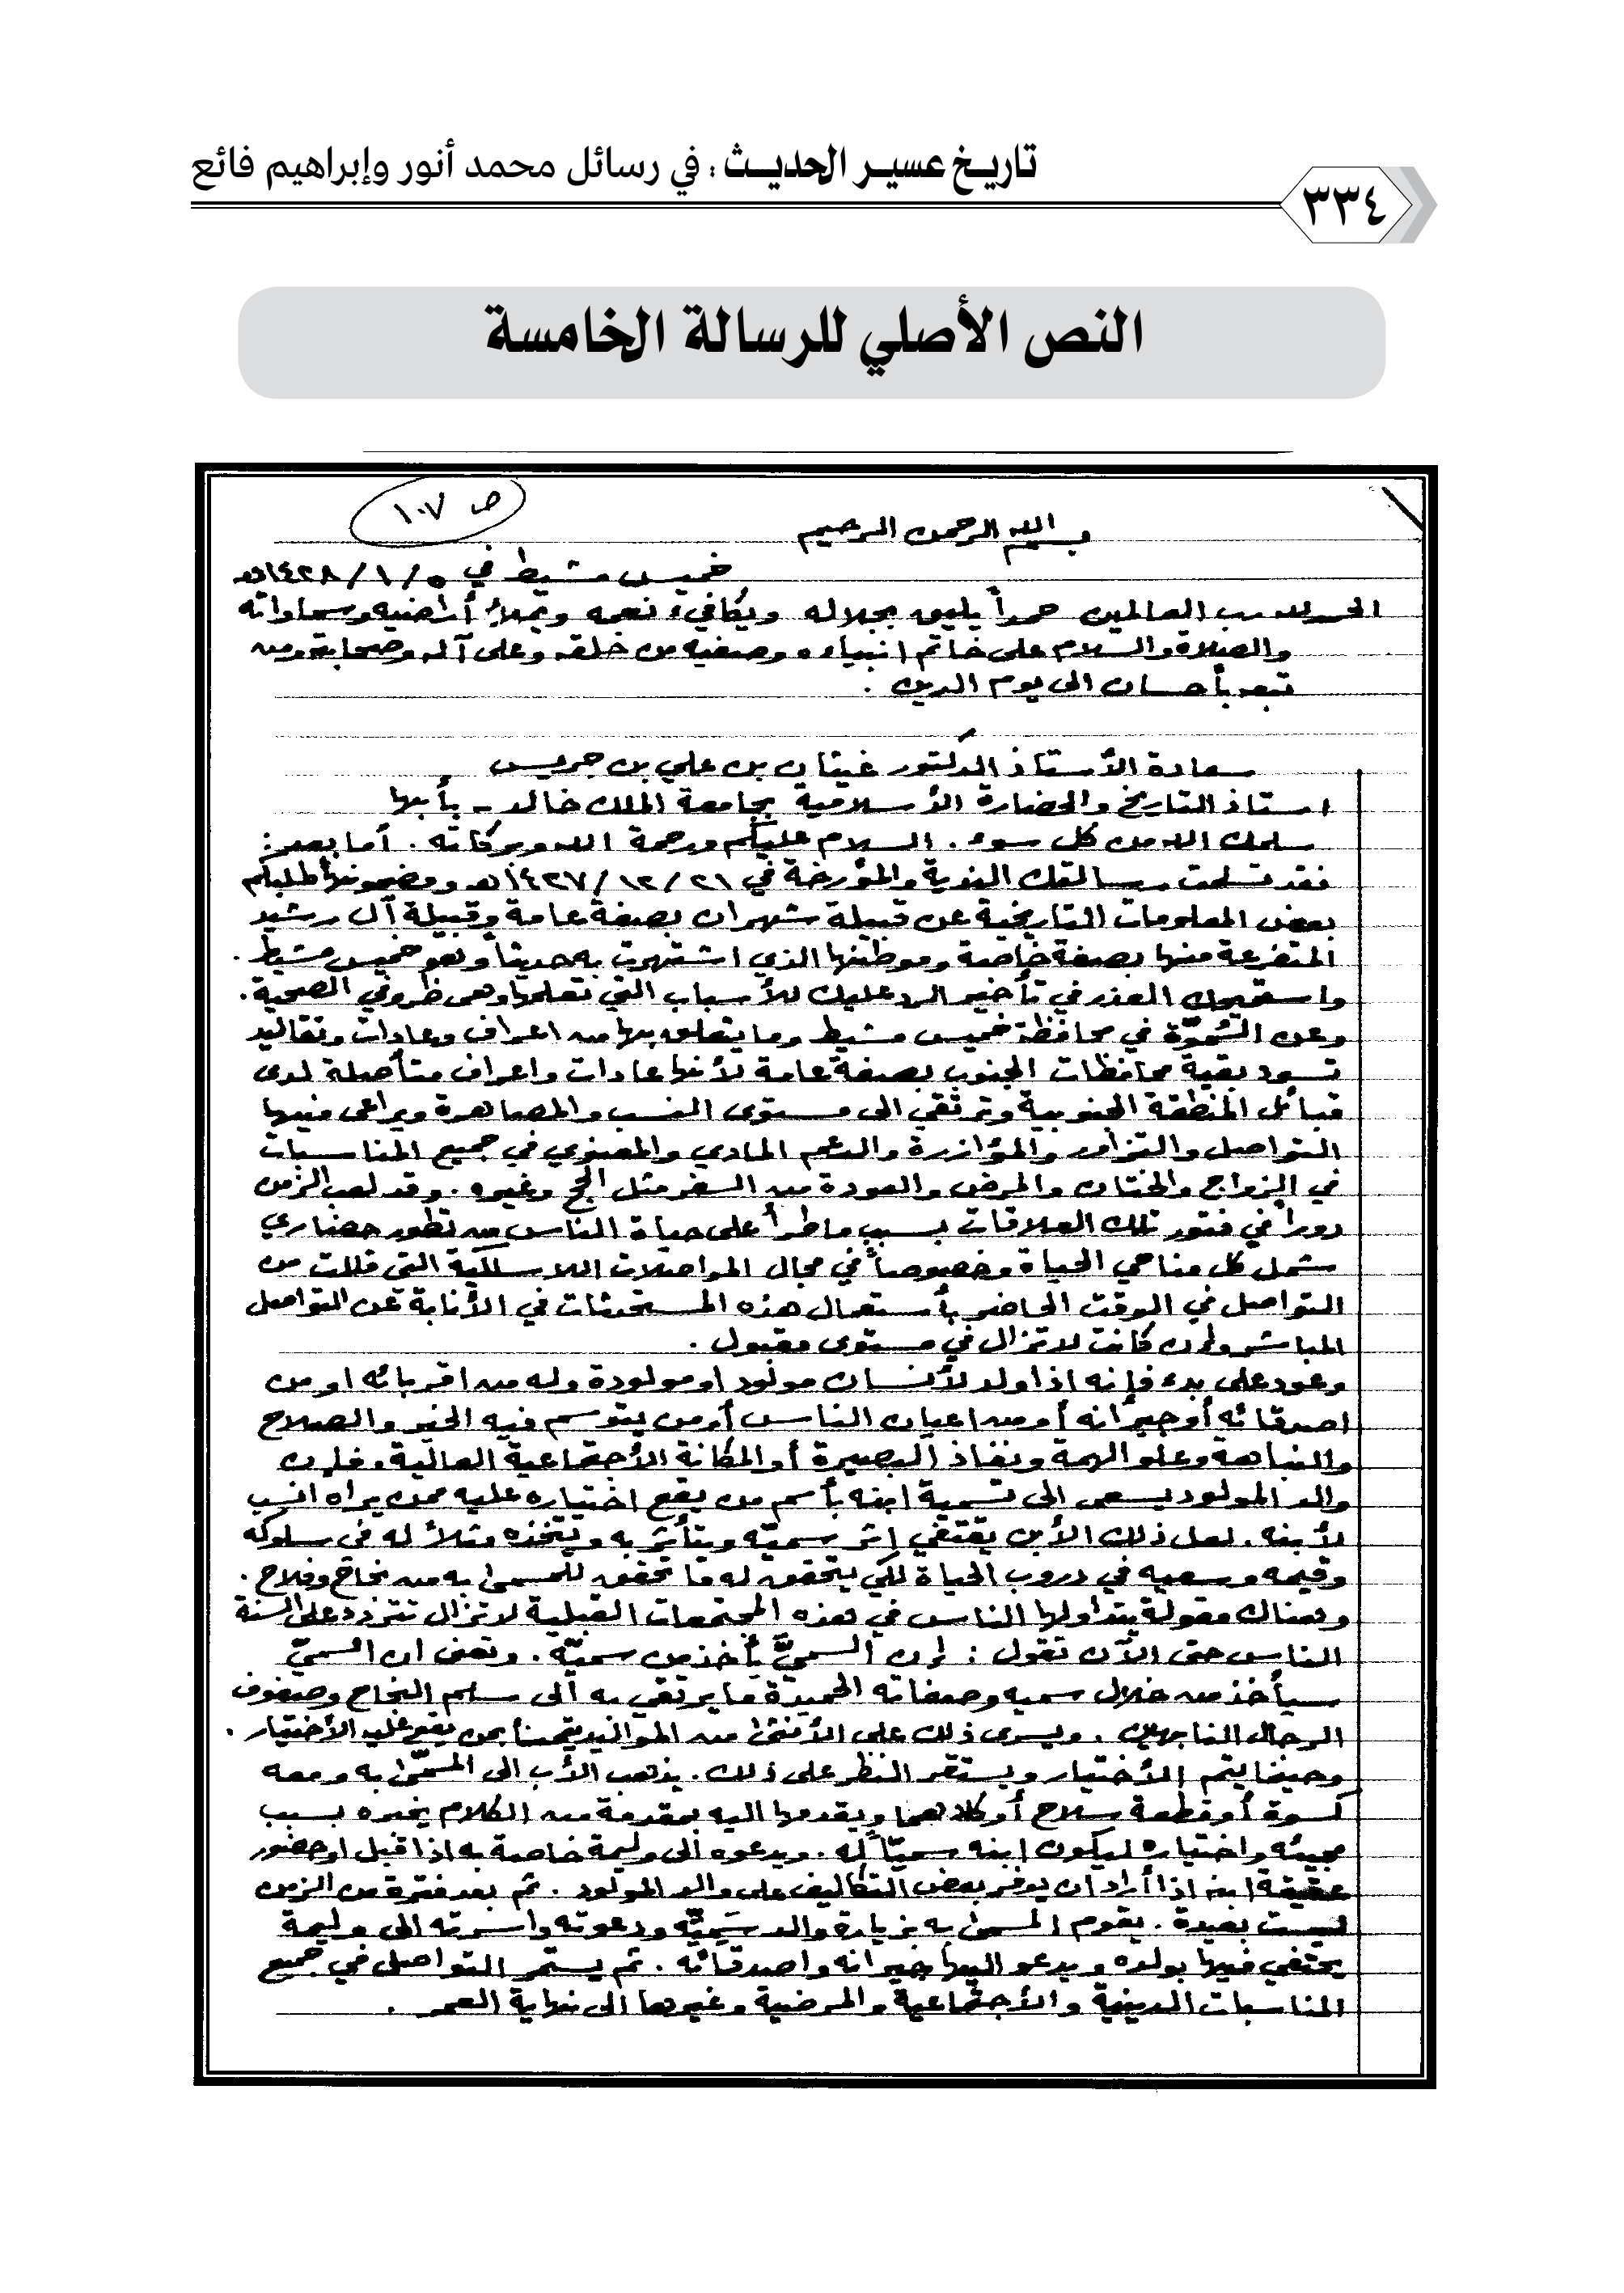 تاريخ عسير الحديث : في رسائل محمد أنور وإبراهيم فائع
٣٣٤
النص الأصلي للرسالة الخامسة
ص ١٠٧
بسم الله الرحمن الرحيم
خميس مشيط في ٥/١/١٤٢٨هـ
الحمد لله رب العالمين حمداً يليق بجلاله ويكافيء نعمه ويملأ أراضيه وسماواته
والصلاة والسلام على خاتم انبياءه وصفيه من خلقه وعلى آله وصحابته ومن
تبعه بأحسان الى يوم الدين .
سعادة الأستاذ الدكتور غيثان بن علي بن جريس
استاذ التاريخ والحضارة الأسلامية بجامعة الملك خالد - بأبها
سلمك الله من كل سوء . السلام عليكم ورحمة الله وبركاته . أما بعد :
فقد تسلمت رسالتك الندية والمؤرخة في ٢١/١٢/١٤٢٧هـ ومضمونها طلبكم
بعض المعلومات التاريخية عن قبيلة شهران بصفة عامة وقبيلة آل رشيد
المتفرعة منها بصفة خاصة وموطنها الذي اشتهرت به حديثاً وهو خميس مشيط .
واستميحك العذر في تأخير الرد عليك للأسباب التي تعلمها وهي ظروفي الصحية .
وعن السُموّة في محافظة خميس مشيط وما يتعلق بها من اعراف وعادات وتقاليد
تسود بقية محافظات الجنوب بصفة عامة لأنها عادات واعراف متأصلة لدى
قبائل المنطقة الجنوبية وترتقي الى مستوى النسب والمصاهرة ويراعى فيها
التواصل والتزاور والمؤازرة والدعم المادي والمعنوي في جميع المناسبات
في الزواج والختان والمرض والعودة من السفر مثل الحج وغيره . وقد لعب الزمن
دوراً في فتور تلك العلاقات بسبب ما طرأ على حياة الناس من تطور حضاري
شمل كل مناحي الحياة وخصوصاً في مجال المواصلات اللاسلكية التي قللت من
التواصل في الوقت الحاضر بأستعمال هذه المستحدثات في الأنابة عن التواصل
المباشر وإن كانت لا تزال في مستوى مقبول .
وعود على بدء فإنه اذا ولد لأنسان مولود او مولودة وله من اقربائه او من
اصدقائه أو جيرانه أو من اعيان الناس أو من يتوسم فيه الخير والصلاح
والنباهة وعلو الهمة ونفاذ البصيرة أو المكانة الأجتماعية العالية . فإن
والد المولود يسعى الى تسمية ابنه بأسم من يقع اختياره عليه ممن يراه انسب
لأبنه . لعل ذلك الأبن يقتفي إثر سميّه ويتأثر به ويتخذه مثلاً له في سلوكه
وقيمه وسعيه في دروب الحياة لكي يتحقق له ما تحقق للمسمى به من نجاح وفلاح .
وهناك مقولة يتداولها الناس في هذه المجتمعات القبلية لا تزال تتردد على السنة
الناس حتى الآن تقول : إن السميّ يأخذ من سميّه . وتعنى ان السميّ
سيأخذ من خلال سميه وصفاته الحميدة ما يرتقي به الى سلم النجاح وصفوف
الرجال الناجحين . ويسري ذلك على الأنثى من المواليد تيمناً بمن يقع عليه الأختيار .
وحينما يتم الأختيار ويستقر النظر على ذلك . يذهب الأب الى المسمّى به ومعه
كسوة أو قطعة سلاح أو كلاهما ويقدمها اليه بمقدمة من الكلام يخبره بسبب
مجيئه واختياره ليكون ابنه سميّاً له . ويدعوه الى وليمة خاصة به اذا قبل او حضور
عقيقة ابنه اذا أراد ان يوفر بعض التكاليف على والد المولود . ثم بعد فترة من الزمن
ليست بعيدة . يقوم المسمى به بزيارة والد سَمِيّه ودعوته واسرته الى وليمة
يحتفي فيها بولده ويدعو اليها جيرانه واصدقائه . ثم يستمر التواصل في جميع
المناسبات الدينية والأجتماعية والمرضية وغيرها الى نهاية العمر .